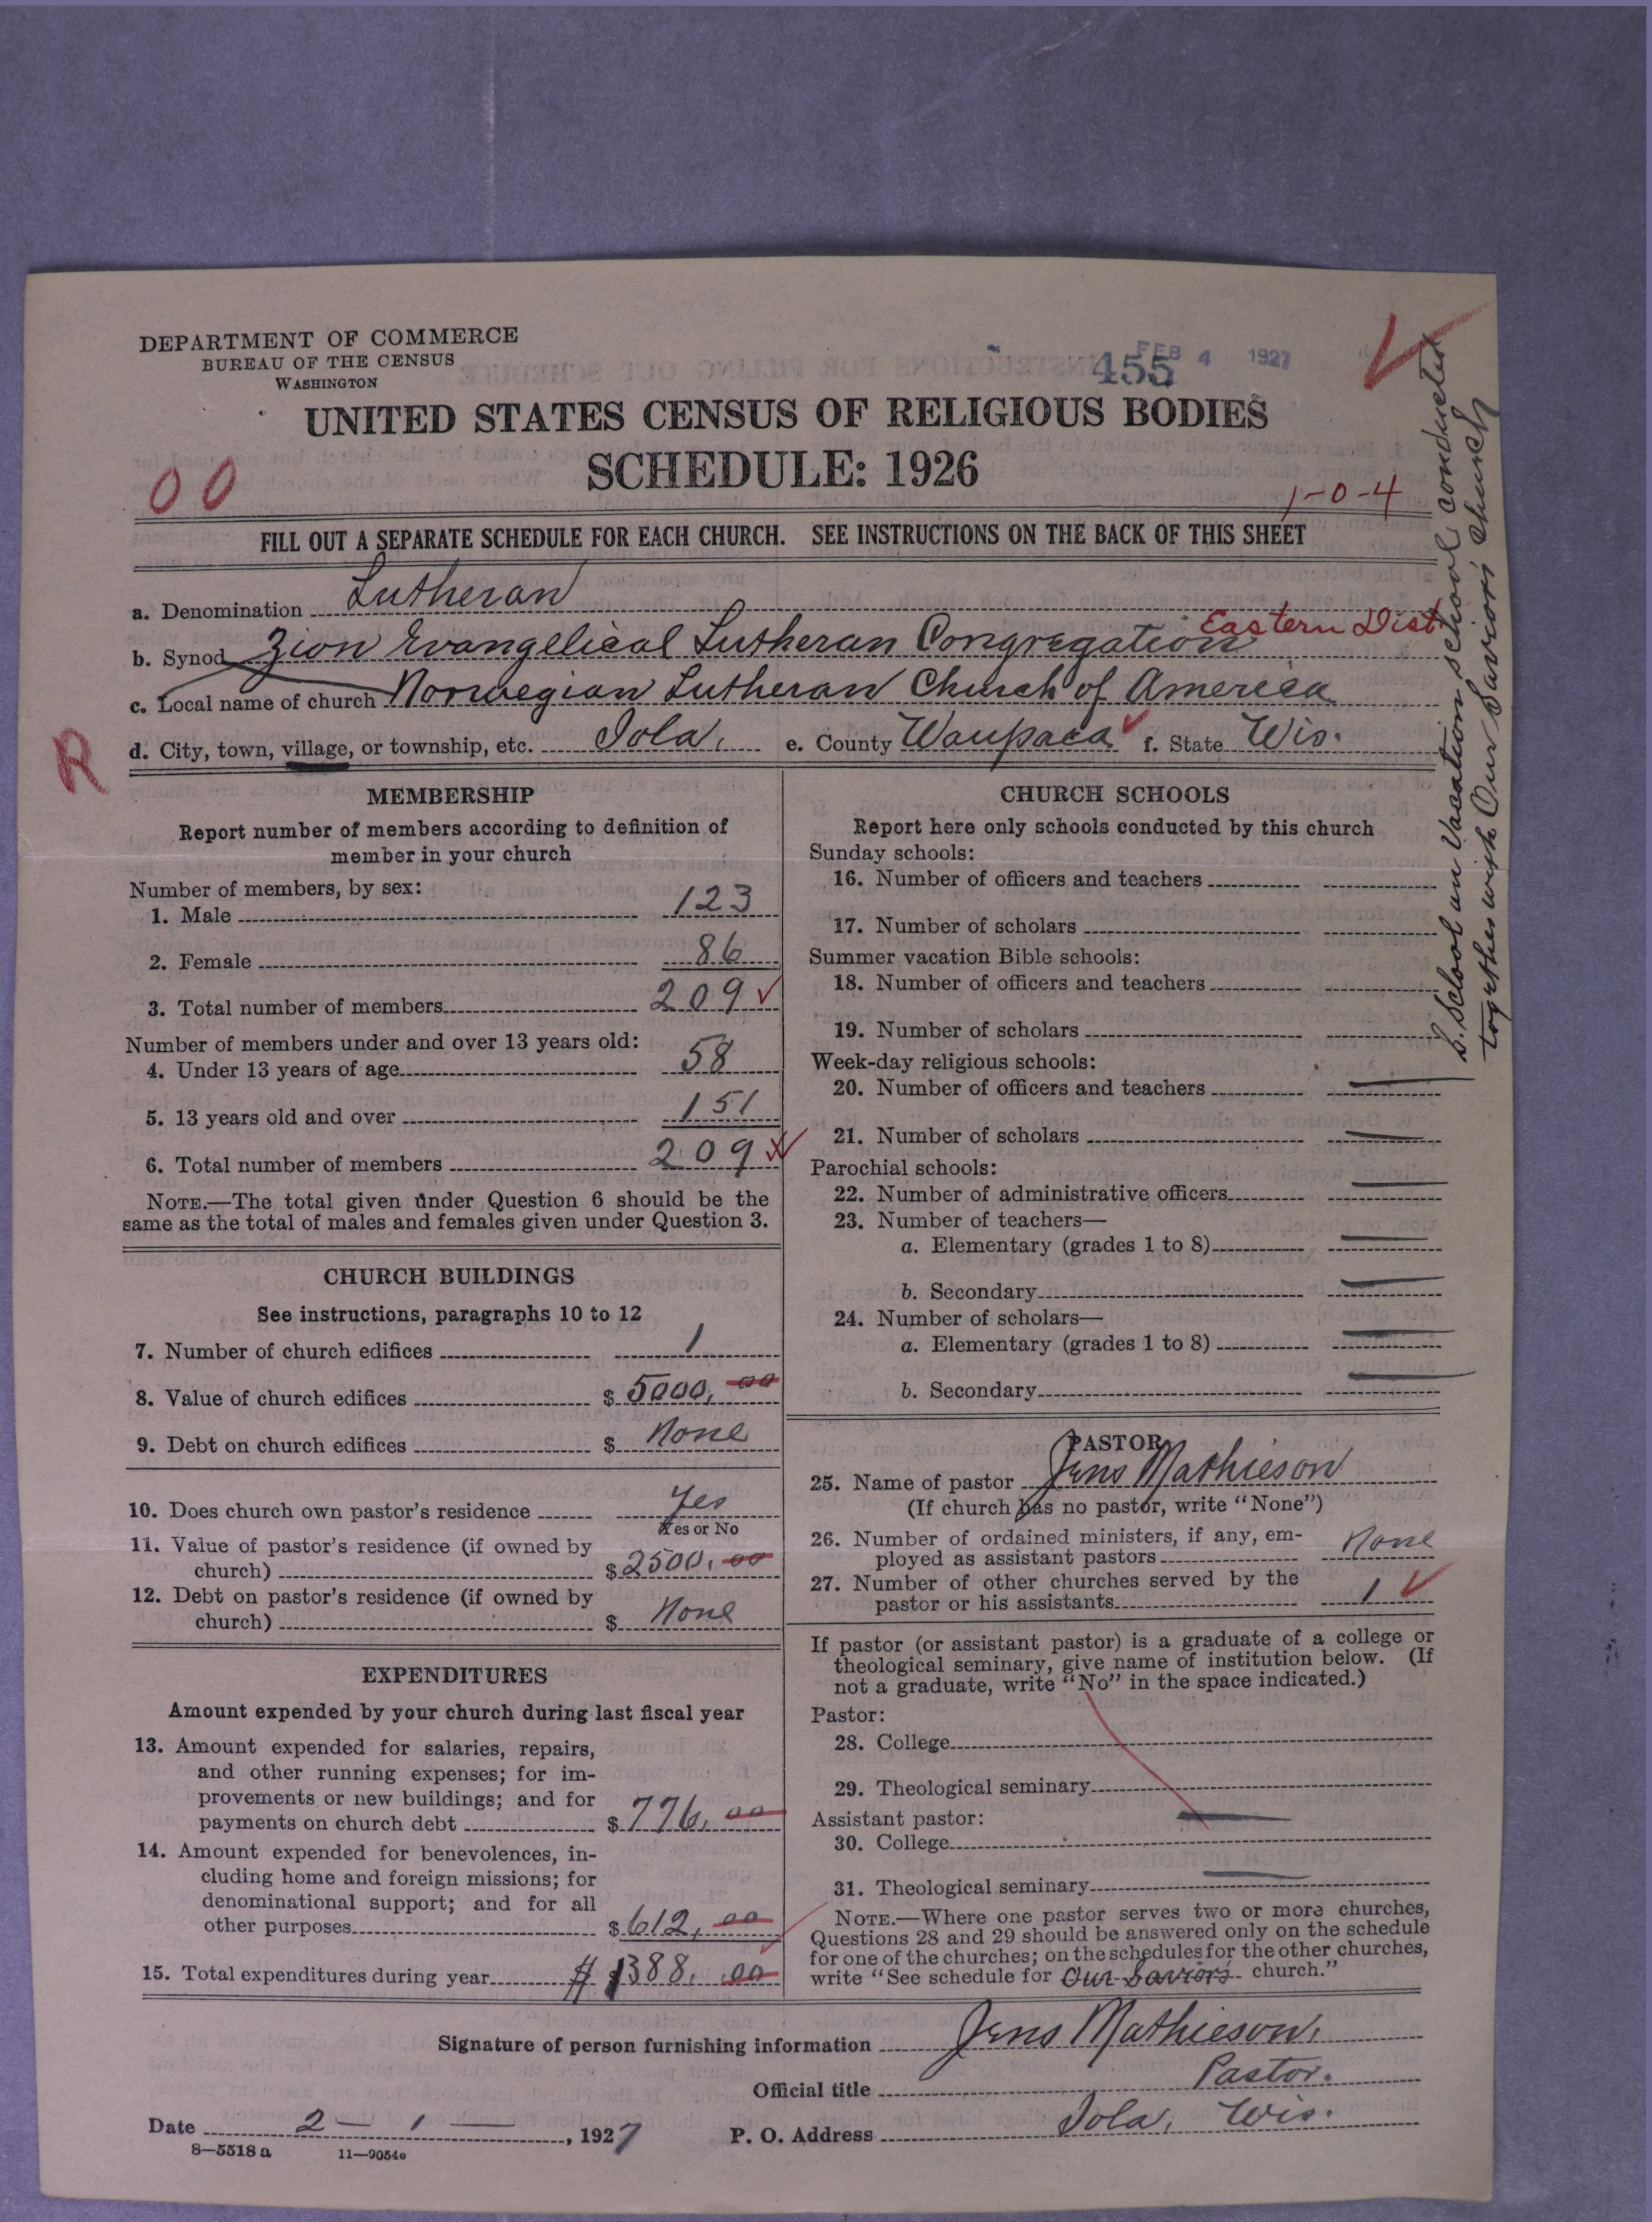 DEPARTMENT OF COMMERCE
BUREAU OF THE CENSUS
WASHINGTON
455
FEB 4 1927
UNITED STATES CENSUS OF RELIGIOUS BODIES
SCHEDULE: 1926
00
1-0-4
FILL OUT A SEPARATE SCHEDULE FOR EACH CHURCH. SEE INSTRUCTIONS ON THE BACK OF THIS SHEET
a. Denomination Lutheran
Eastern Dist
b. Synod Zion Evangelical Lutheran Congregation
c. Local name of church Norwegian Lutheran Church of America
d. City, town, village, or township, etc. Iola, e. County Waupaca f. State Wis.
R
MEMBERSHIP
Report number of members according to definition of
member in your church
Number of members, by sex:
1. Male 123
2. Female 86
3. Total number of members 209
Number of members under and over 13 years old:
4. Under 13 years of age 58
5. 13 years old and over 151
6. Total number of members 209
NOTE.—The total given under Question 6 should be the
same as the total of males and females given under Question 3.
CHURCH BUILDINGS
See instructions, paragraphs 10 to 12
7. Number of church edifices 1
8. Value of church edifices $ 5000.00
9. Debt on church edifices $ None
10. Does church own pastor's residence Yes
Yes or No
11. Value of pastor's residence (if owned by
church) $ 2500.00
12. Debt on pastor's residence (if owned by
church) $ None
EXPENDITURES
Amount expended by your church during last fiscal year
13. Amount expended for salaries, repairs,
and other running expenses; for im-
provements or new buildings; and for
payments on church debt $ 776.00
14. Amount expended for benevolences, in-
cluding home and foreign missions; for
denominational support; and for all
other purposes $ 612.00
15. Total expenditures during year $ 1388.00
CHURCH SCHOOLS
Report here only schools conducted by this church
Sunday schools:
16. Number of officers and teachers
17. Number of scholars
Summer vacation Bible schools:
18. Number of officers and teachers
19. Number of scholars
Week-day religious schools:
20. Number of officers and teachers —
21. Number of scholars —
Parochial schools:
22. Number of administrative officers —
23. Number of teachers—
a. Elementary (grades 1 to 8) —
b. Secondary —
24. Number of scholars—
a. Elementary (grades 1 to 8) —
b. Secondary —
S. School an Vacation school conducted
together with Our Saviors church
PASTOR
25. Name of pastor Jens Mathieson
(If church has no pastor, write "None")
26. Number of ordained ministers, if any, em-
ployed as assistant pastors None
27. Number of other churches served by the
pastor or his assistants 1
If pastor (or assistant pastor) is a graduate of a college or
theological seminary, give name of institution below. (If
not a graduate, write "No" in the space indicated.)
Pastor:
28. College
29. Theological seminary
Assistant pastor:
30. College —
31. Theological seminary —
NOTE.—Where one pastor serves two or more churches,
Questions 28 and 29 should be answered only on the schedule
for one of the churches; on the schedules for the other churches,
write "See schedule for Our Saviors church."
Signature of person furnishing information Jens Mathieson.
Official title Pastor.
Date 2 — 1 —, 1927 P. O. Address Iola, Wis.
8—5518 a 11—9054e